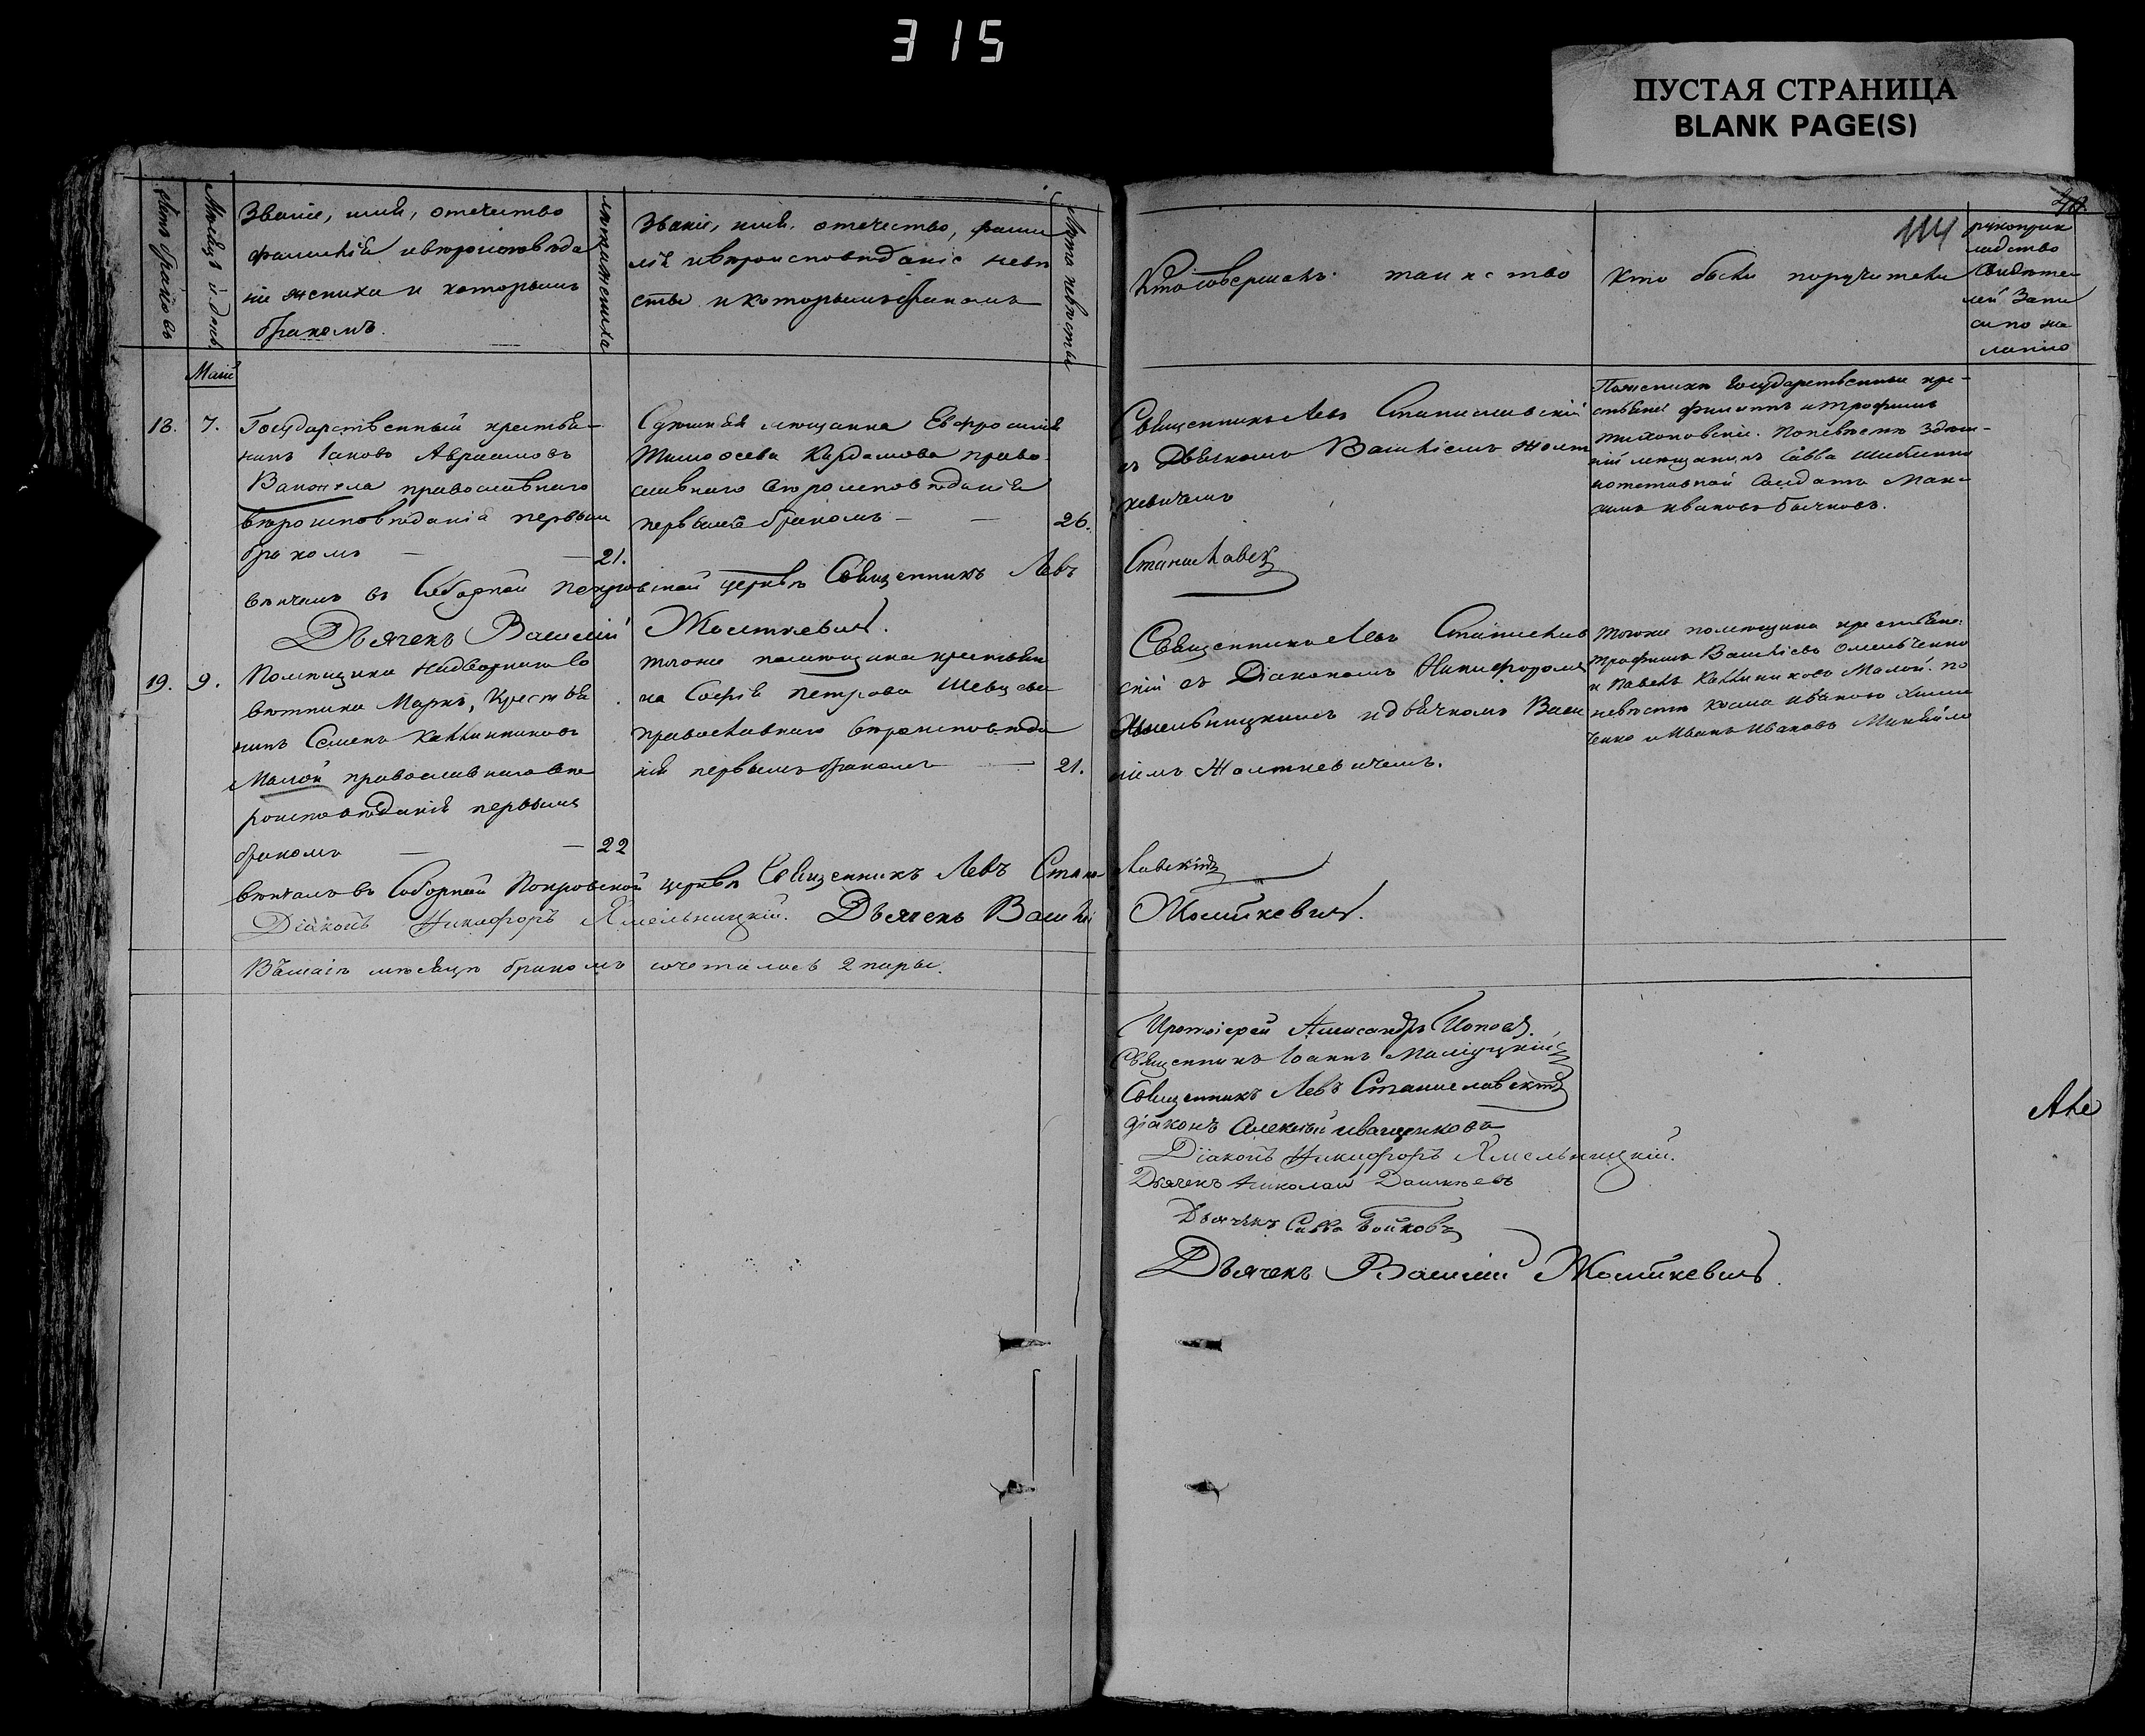 315
ПУСТАЯ СТРАНИЦА
BLANK PAGE(S)
114
Счетъ браковъ
Мѣсяцъ и день
Званіе, имя, отечество
фамилія и вѣроисповѣда
ніе жениха и которымъ
бракомъ.
лѣта жениха
Званіе, имя, отечество, фами
лія и вѣроисповѣданіе невѣ
сты и которымъ бракомъ
Лѣта невѣсты
Кто совершалъ таинство
Кто были поручители
рукоприк
ладство
свидѣте
лей запи
си по же
ланію
Май
18. 7.
Государственный крестья-
нинъ Іаковъ Авраамовъ
православнаго
вѣроисповѣданія первым
бракомъ — — 21.
Здѣшняя мѣщанка Евфросинія
Тимоѳеева Кардашова право-
славнаго вѣроисповѣданія
первымъ бракомъ — — 26.
Священникъ Левъ Станиславскій
съ Дьячкомъ Василіемъ Жолт
кевичемъ
По женихѣ государственные кре-
стьяне Филиппъ и Трофимъ
Тихоновскіе. По невѣстѣ здѣш-
ній мѣщанинъ Савва
и отставной солдатъ Мак-
симъ Ивановъ Бычковъ.
вѣнчалъ въ Соборной Покровской церквѣ Священникъ Левъ Станиславск
Дьячекъ Василій Жолткевичъ.
19. 9.
Помѣщика Надворнаго Со
вѣтника Маркъ, крестья
нинъ Семенъ Каллинниковъ
Малой православнаго вѣ
роисповѣданія первымъ
бракомъ — — 22
тогоже помѣщика крестьян
ка Софія Петрова Шевцова
православнаго вѣроисповѣда
нія первымъ бракомъ — 21.
Священникъ Левъ Станислав
скій съ Діакономъ Никифоромъ
Хмельницкимъ и дьячкомъ Васи
ліемъ Жолткевичемъ.
тогоже помѣщика крестьяне:
Трофимъ Василіевъ Омельченко
и Павелъ Каллиниковъ Малой. по
невѣстѣ Косма Ивановъ
и Иванъ Ивановъ
вѣнчалъ въ Соборной Покровской церквѣ Священникъ Левъ Станиславскій
Діаконъ Никифоръ Хмельницкій. Дьячекъ Василій Жолткевичъ.
Въ маіѣ мѣсяцѣ бракомъ сочеталось 2 пары.
Протоіерей Александръ Поповъ.
Священникъ Іоаннъ
Священникъ Левъ Станиславскій
діаконъ Алексѣй Иващенковъ
Діаконъ Никифоръ Хмельницкій.
Дьячекъ Николай Дашкѣевъ
Дьячекъ Савва Бойковъ
Дьячекъ Василій Жолткевичъ.